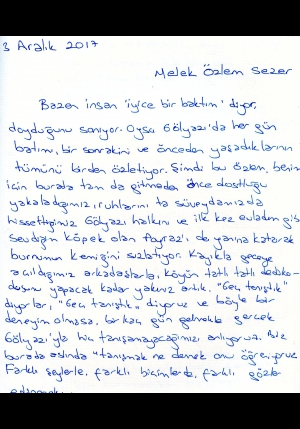 3 Aralık 2017
Melek Özlem Sezer
Bazen insan "iyice bir baktım" diyor,
doyduğunu sanıyor. Oysa Gölyazı'da her gün
batımı, bir sonrakini ve önceden yaşadıklarının
tümünü birden özletiyor. Şimdi bu özlem, benim
için burada tam da gitmeden önce dostluğu
yakaladığımız, ruhlarını ta süveydamızda
hissettiğimiz Gölyazı halkını ve ilk kez evladım gibi
sevdiğim köpek olan Poyraz'ı de yanına katarak
burnumun kemiğini sızlatıyor. Kayıkla geceye
açıldığımız arkadaşlarla, köyün tatlı tatlı dediko-
dusunu yapacak kadar yakınız artık. "Geç tanıştık"
diyorlar, "Geç tanıştık" diyoruz ve böyle bir
deneyim olmasa, birkaç gün gelmekle gerçek
Gölyazı'yla hiç tanışamayacağımızı anlıyoruz. Biz
burada aslında "tanışmak ne demek onu öğreniyoruz
Farklı şeylerle, farklı biçimlerde, farklı gözle